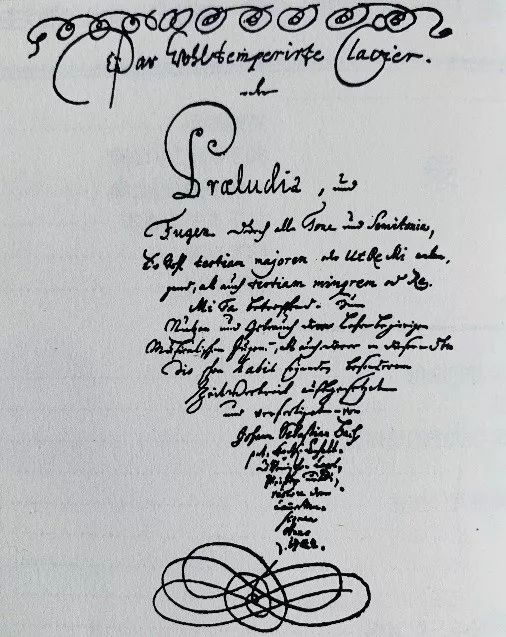 Das Wohltemperirte Clavier.
oder
Præludia, und
Fugen durch alle Tone und Semitonia,
So wohl tertiam majorem oder Ut Re Mi anlan-
gend, als auch tertiam minorem oder Re
Mi Fa betreffend. Zum
Nutzen und Gebrauch der Lehrbegierigen
Musicalischen Jugend, als auch derer in diesem stu-
dio schon habil seyenden besonderem
Zeitvertreib auffgesetzet
und verfertiget von
Johann Sebastian Bach
p. t.
Anno
1722.